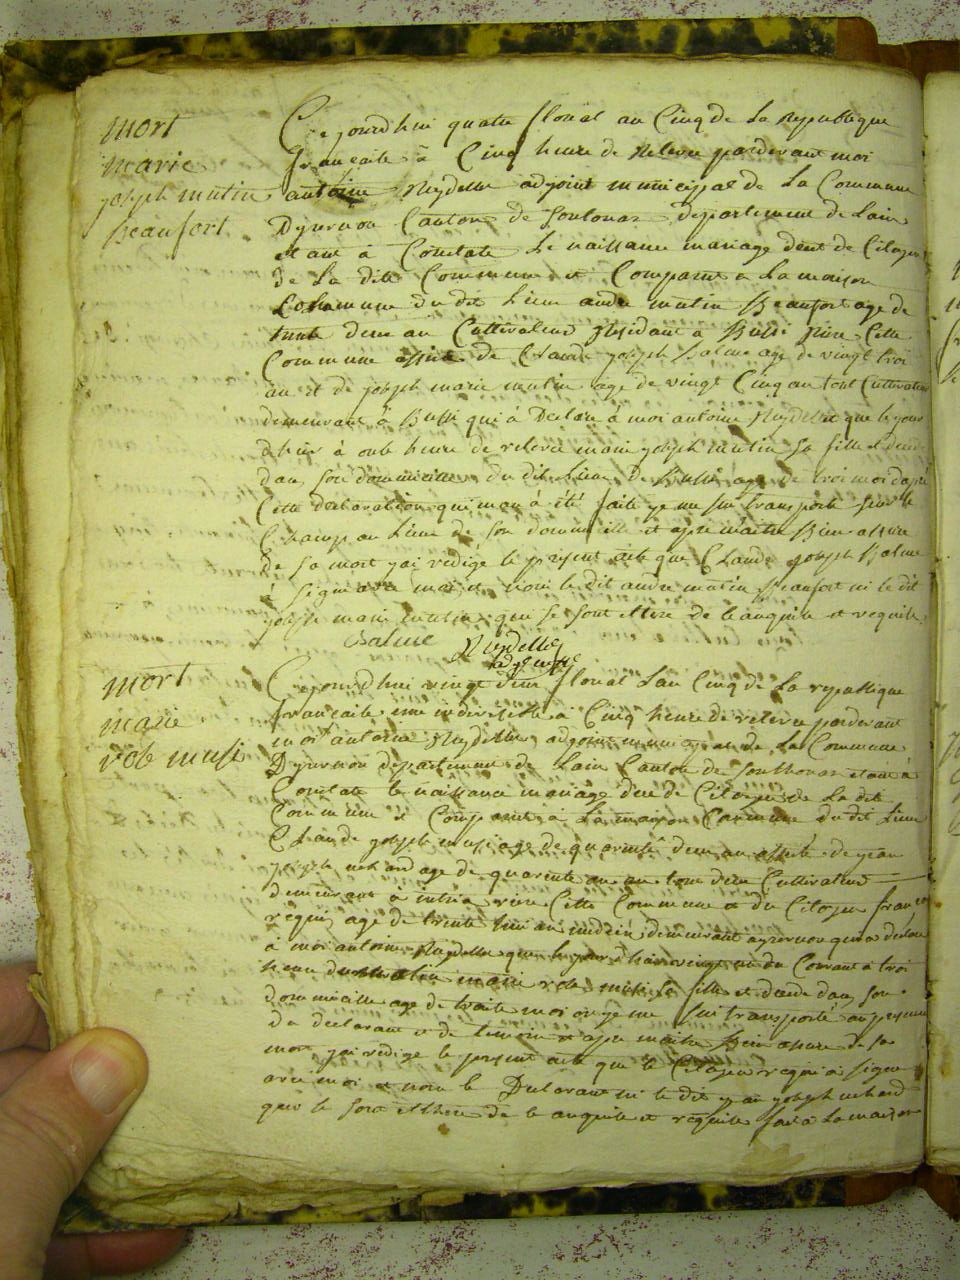 mort
marie
joseph mutin
Beaufort
Ce jourdhui quatre floreal an Cinq de La Republique
francaise à Cinq heure de Releve pardevant moi
antoine Reydelle adjoint municipal de La Commune
Dyzernou Canton de Sonlonas Departement de Lain
etant à Constate Le naissance mariage deut de Citoyen
de La ditte Commune et Comparut a La maison
Commune du dit Lieu andre mutin Beaufort age de
trente deux an Cultivateur Residant à Bussi Riere Cette
Commune assite de Claude joseph Balme age de vingt troi
an et de joseph marie mutin age de vingt Cinq an tout Cultivateur
demeurant à Bussi qui à Declare à moi antoine Reydellet que le jour
dhier à onte heure de releve marie joseph mutin sa fille et decede
dan son dommicille du dit Lieu de Bussi age de troi moi dapré
Cette declaration qui ma à été faite je me sui transporte sur le
Champ au Lieu de son dommicille et apre maitre Bien assure
de sa mort jai redigé le present acte que Claude joseph Balme
à signi ave moi et non le dit andre mutin Beaufort ni le dit
joseph marie mutin qui se sont ettere de lanquite et requite
Balme Reydellet
adjoint
mort
marie
rose musi
Ce jourdhui vingt deux floreal Lan Cinq de La republique
francaite une indivisible à Cinq heure de releve pardevant
moi antoine Reydellet adjoint municipal de La Commune
Dyzernou departement de Lain Canton de Sonthonas etant à
Constate le naissance mariage dece de Citoyen de La dite
Commune et Comparut à La maison Commune du dit Lieu
Claude joseph musi age de quarente deux an assite de jean
joseph age de quarente an tous deux Cultivateur
demeurant à intria riere Cette Commune et du Citoyen francoi
requi age de trente hui an medcin demeurant ayzernou qui a declare
à moi antoine Reydellet que le jour dhier vingt un du Courant à troi
heure du matin marie rose musi sa fille et decede dan son
dommicille age de traite moi or je me sui transporté au presence
du declarant et de temoin et apre maitre Bien assure de sa
mort jai redige le present acte que le Citoyen requi à signe
ave moi et non le Declarant ni le dit jean joseph
qui le sont etthere de lanquite et requite fait à La maison